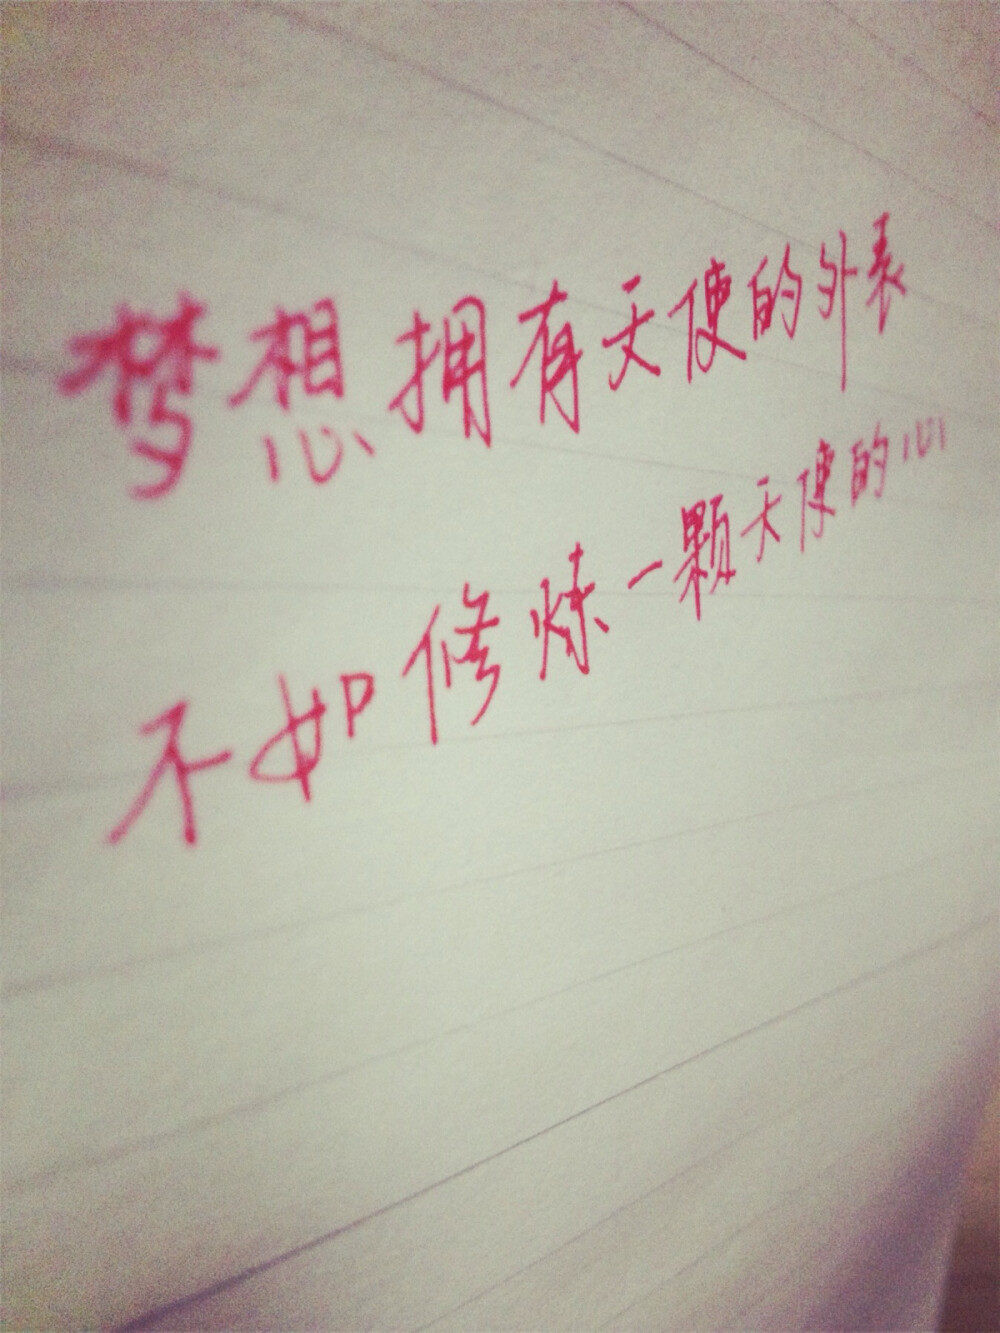 梦想拥有天使的外表
不如修炼一颗天使的心